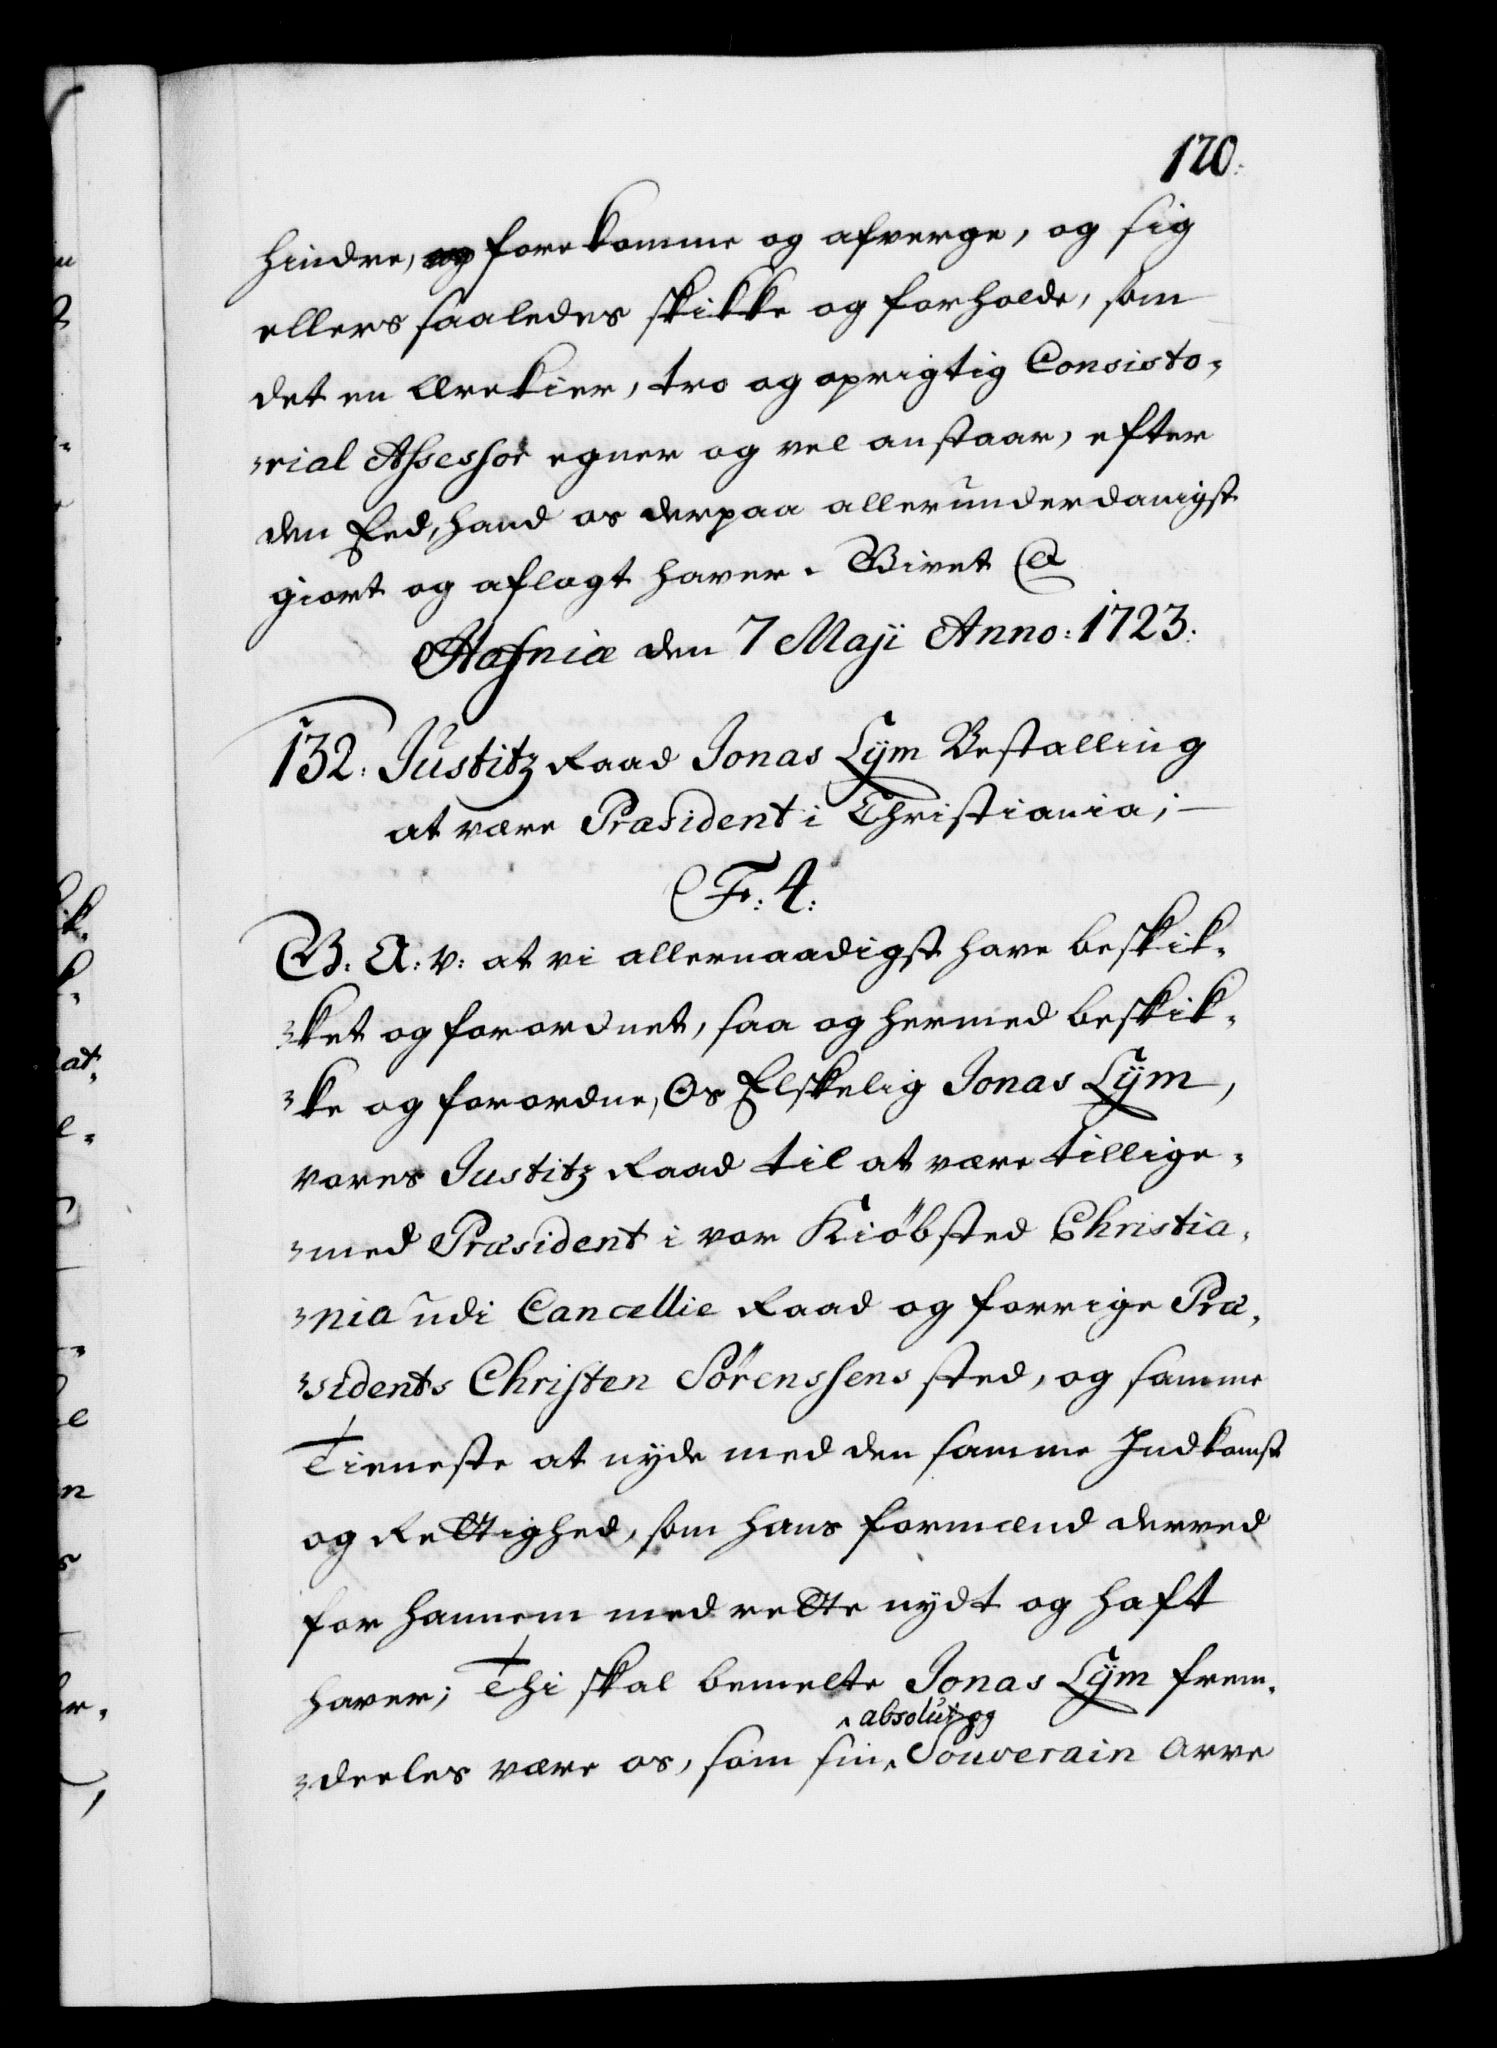 120.
hindre, og forekomme og afverge, og sig
ellers saaledes skikke og forholde, som
det en ærekier, tro og oprigtig Consisto-
rial Assessor egner og vel anstaar, efter
den Eed, hand os derpaa allerunderdanigst
giort og aflagt haver. Givet &
Hafniæ den 7 Maji Anno: 1723:
132: Justitz Raad Jonas Lÿm Bestalling
at være Præsident i Christiania;
F: 4:
G: A: V: at vi allernaadigst have beskik-
ket og forordnet, saa og hermed beskik-
ke og forordne, Os Elskelig Jonas Lÿm,
vores Justitz Raad til at være tillige-
med Præsident i vor Kiöbsted Christia-
nia udi Cancellie Raad og forrige Præ-
sidents Christen Sörenssens sted, og samme
Tieneste at nyde med den samme Indkomst
og Rettighed, som hans formænd derved
for hannem med rette nydt og haft
haver; Thi skal bemelte Jonas Lÿm frem-
absolut og
deeles være os, som sin Souverain Arve